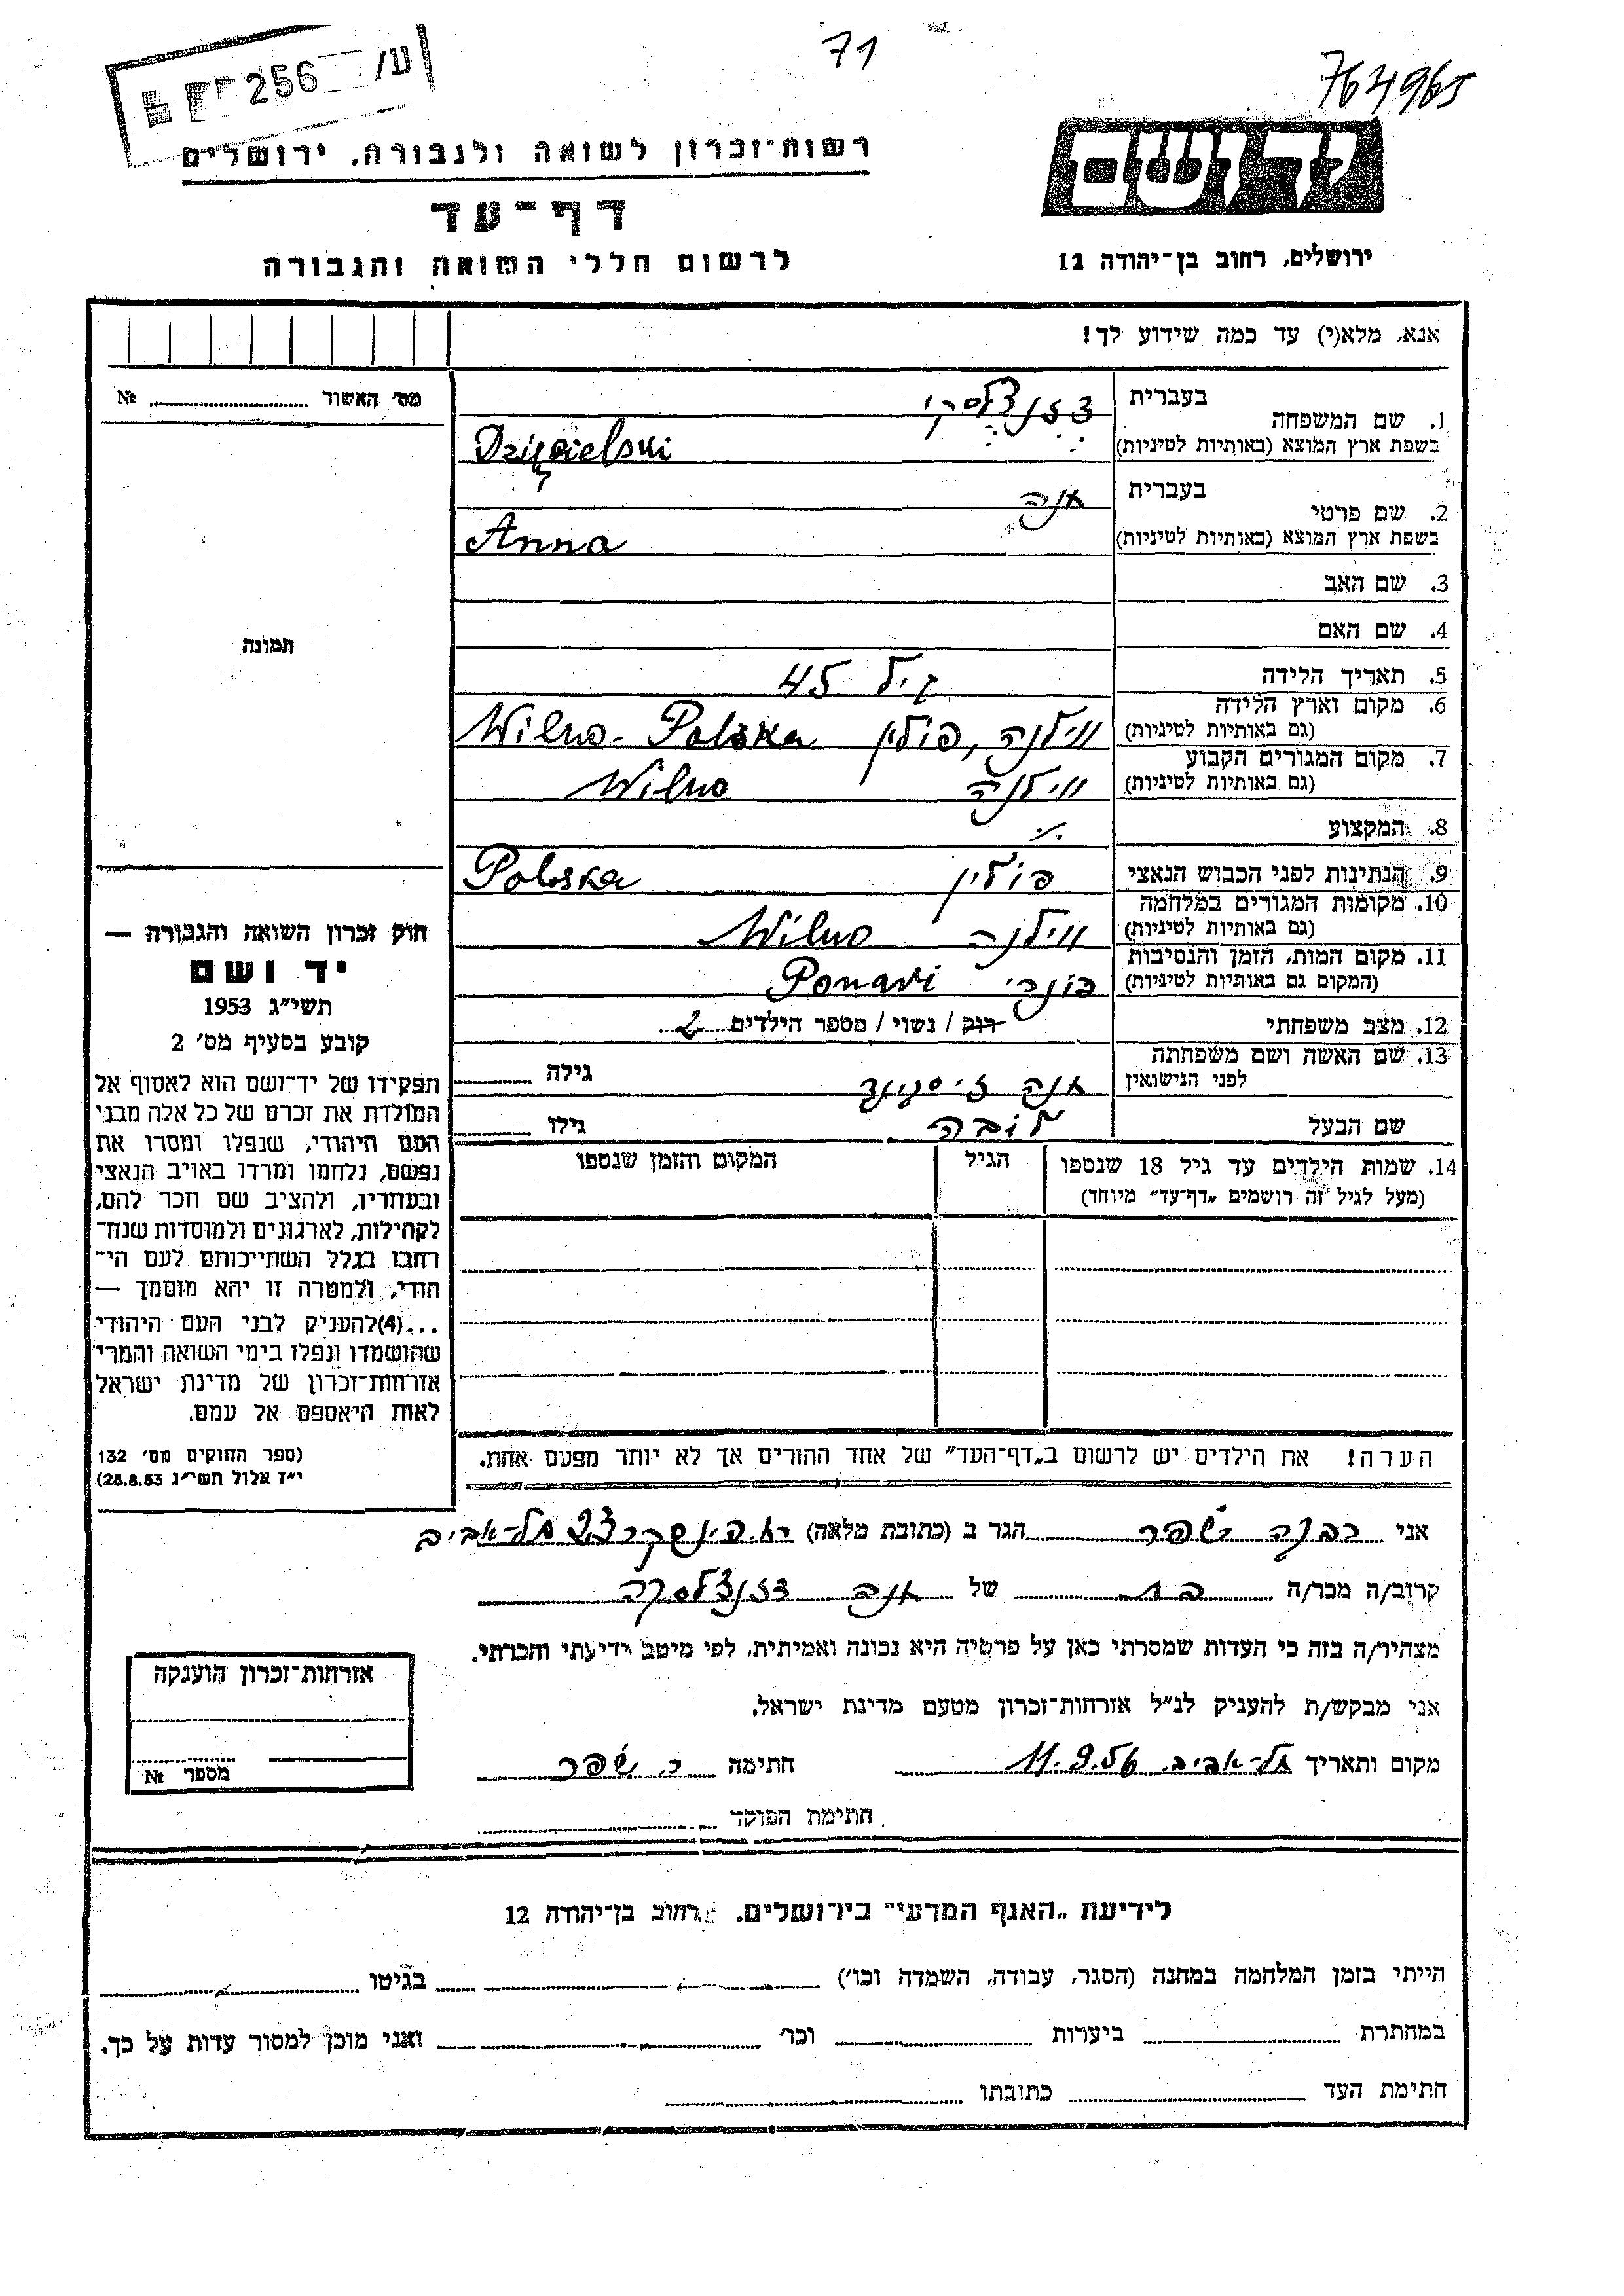 71
764965
256 /ע
רשות־זכרון לשואה ולגבורה, ירושלים
דף־עד
לרשום חללי השואה והגבורה
ידושם
ירושלים, רחוב בן־יהודה 12
אנא, מלא(י) עד כמה שידוע לך!
מס׳ האשור № 
1. שם המשפחה בעברית
בשפת ארץ המוצא (באותיות לטיניות)
2. שם פרטי בעברית אנה
בשפת ארץ המוצא (באותיות לטיניות) Anna
3. שם האב
4. שם האם
5. תאריך הלידה גיל 45
6. מקום וארץ הלידה
(גם באותיות לטיניות) ווילנה, פולין Wilno - Polska
7. מקום המגורים הקבוע
(גם באותיות לטיניות) ווילנה Wilno
8. המקצוע
9. הנתינות לפני הכבוש הנאצי פולין Polska
10. מקומות המגורים במלחמה
(גם באותיות לטיניות) ווילנה Wilno
11. מקום המות, הזמן והנסיבות
(המקום גם באותיות לטיניות) פונרי Ponari
12. מצב משפחתי רוק / נשוי / מספר הילדים 2
13. שם האשה ושם משפחתה
לפני הנישואין אנה גילה
שם הבעל גילו
14. שמות הילדים עד גיל 18 שנספו הגיל המקום והזמן שנספו
(מעל לגיל זה רושמים „דף־עד” מיוחד)
הערה! את הילדים יש לרשום ב„דף־העד” של אחד ההורים אך לא יותר מפעם אחת.
תמונה
חוק זכרון השואה והגבורה —
יד ושם
תשי״ג 1953
קובע בסעיף מס׳ 2
תפקידו של יד־ושם הוא לאסוף אל
המולדת את זכרם של כל אלה מבני
העם היהודי, שנפלו ומסרו את
נפשם, נלחמו ומרדו באויב הנאצי
ובעוזריו, ולהציב שם וזכר להם,
לקהילות, לארגונים ולמוסדות שנח־
רבו בגלל השתייכותם לעם הי־
הודי, ולמטרה זו יהא מוסמך —
...(4)להעניק לבני העם היהודי
שהושמדו ונפלו בימי השואה והמרי
אזרחות־זכרון של מדינת ישראל
לאות היאספם אל עמם.
(ספר החוקים מס׳ 132
י״ז אלול תשי״ג 28.8.53)
אני שפר הגר ב (כתובת מלאה) תל־אביב
קרוב/ה מכר/ה בת של אנה
מצהיר/ה בזה כי העדות שמסרתי כאן על פרטיה היא נכונה ואמיתית, לפי מיטב ידיעתי והכרתי.
אני מבקש/ת להעניק לנ״ל אזרחות־זכרון מטעם מדינת ישראל.
מקום ותאריך תל־אביב. 11.9.56 חתימה שפר
חתימת הפוקד
אזרחות־זכרון הוענקה
מספר №
לידיעת „האגף המדעי” בירושלים, רחוב בן־יהודה 12
הייתי בזמן המלחמה במחנה (הסגר, עבודה, השמדה וכו׳) בגיטו
במחתרת ביערות וכו׳ ואני מוכן למסור עדות על כך.
חתימת העד כתובתו